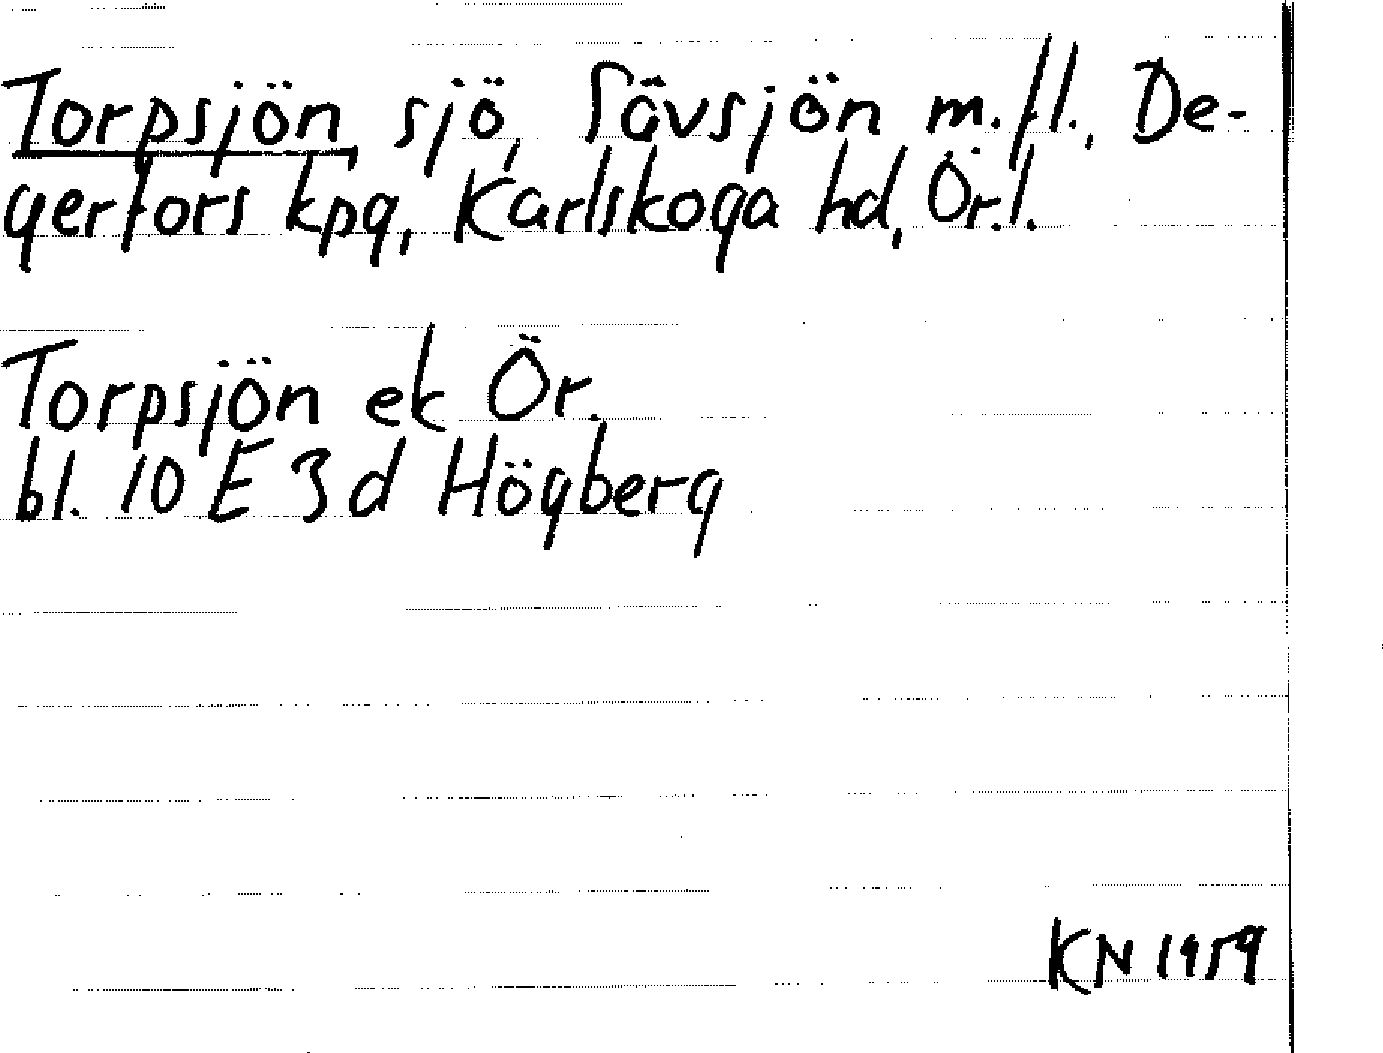 Torpsjön, sjö, Sävsjön m.fl., De-
gerfors kpg, Karlskoga hd, Ör.l.
Torpsjön ek Ör.
bl. 10 E 3 d Högberg
KN 1959